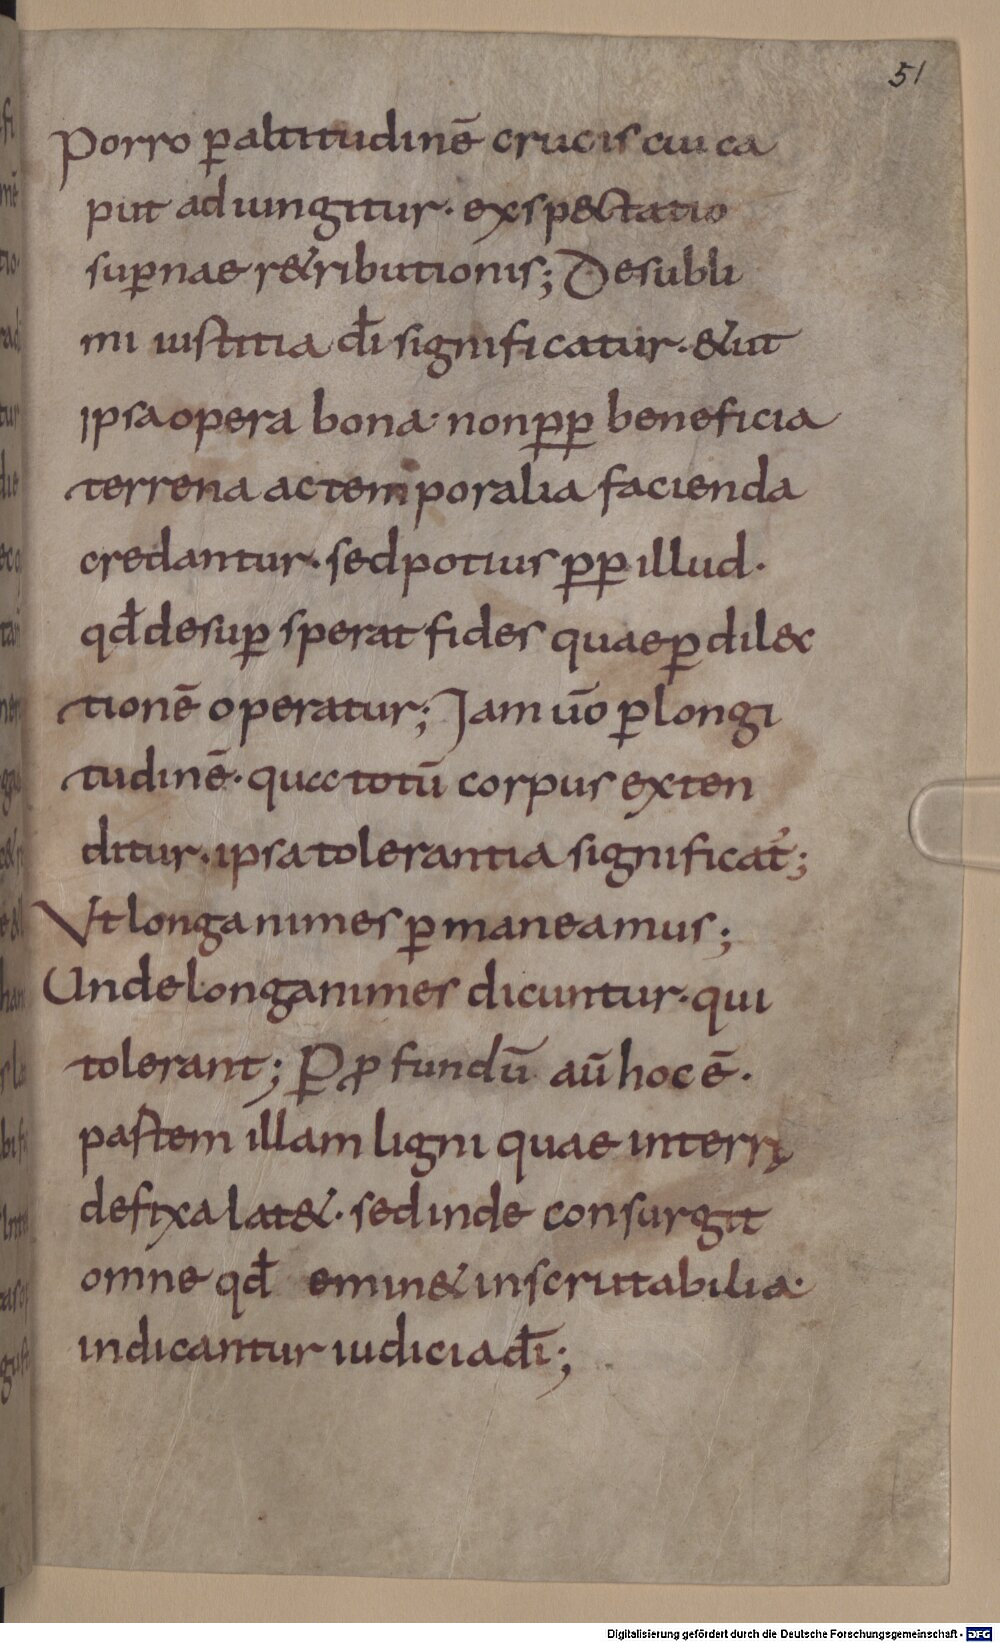 51
Porro ꝑ altitudinē crucis cui ca
put adiungitur· exsp&ctatio
suꝑnae r&ributionis; De subli
mi iustitia dī significatur· & ut
ipsa opera bona· non ꝓꝓ beneficia
terrena ac temporalia facienda
credantur· sed potius ꝓꝓ illud·
qđ desuꝑ sperat fides quae ꝑ dil&c
tionē operatur; Iam ūo ꝑ longi
tudinē· qua totū corpus exten
ditur· ipsa tolerantia significat᷑;
Vt longanimes ꝑmaneamus;
Unde longanimes dicuntur· qui
tolerant; P ꝓfundū aū hoc ē·
pastem illam ligni quae in terrę
defixa lat&· sed inde consurgit
omne qđ emin& inscrutabilia·
indicantur iudicia dī;
Digitalisierung gefördert durch die Deutsche Forschungsgemeinschaft - DFG